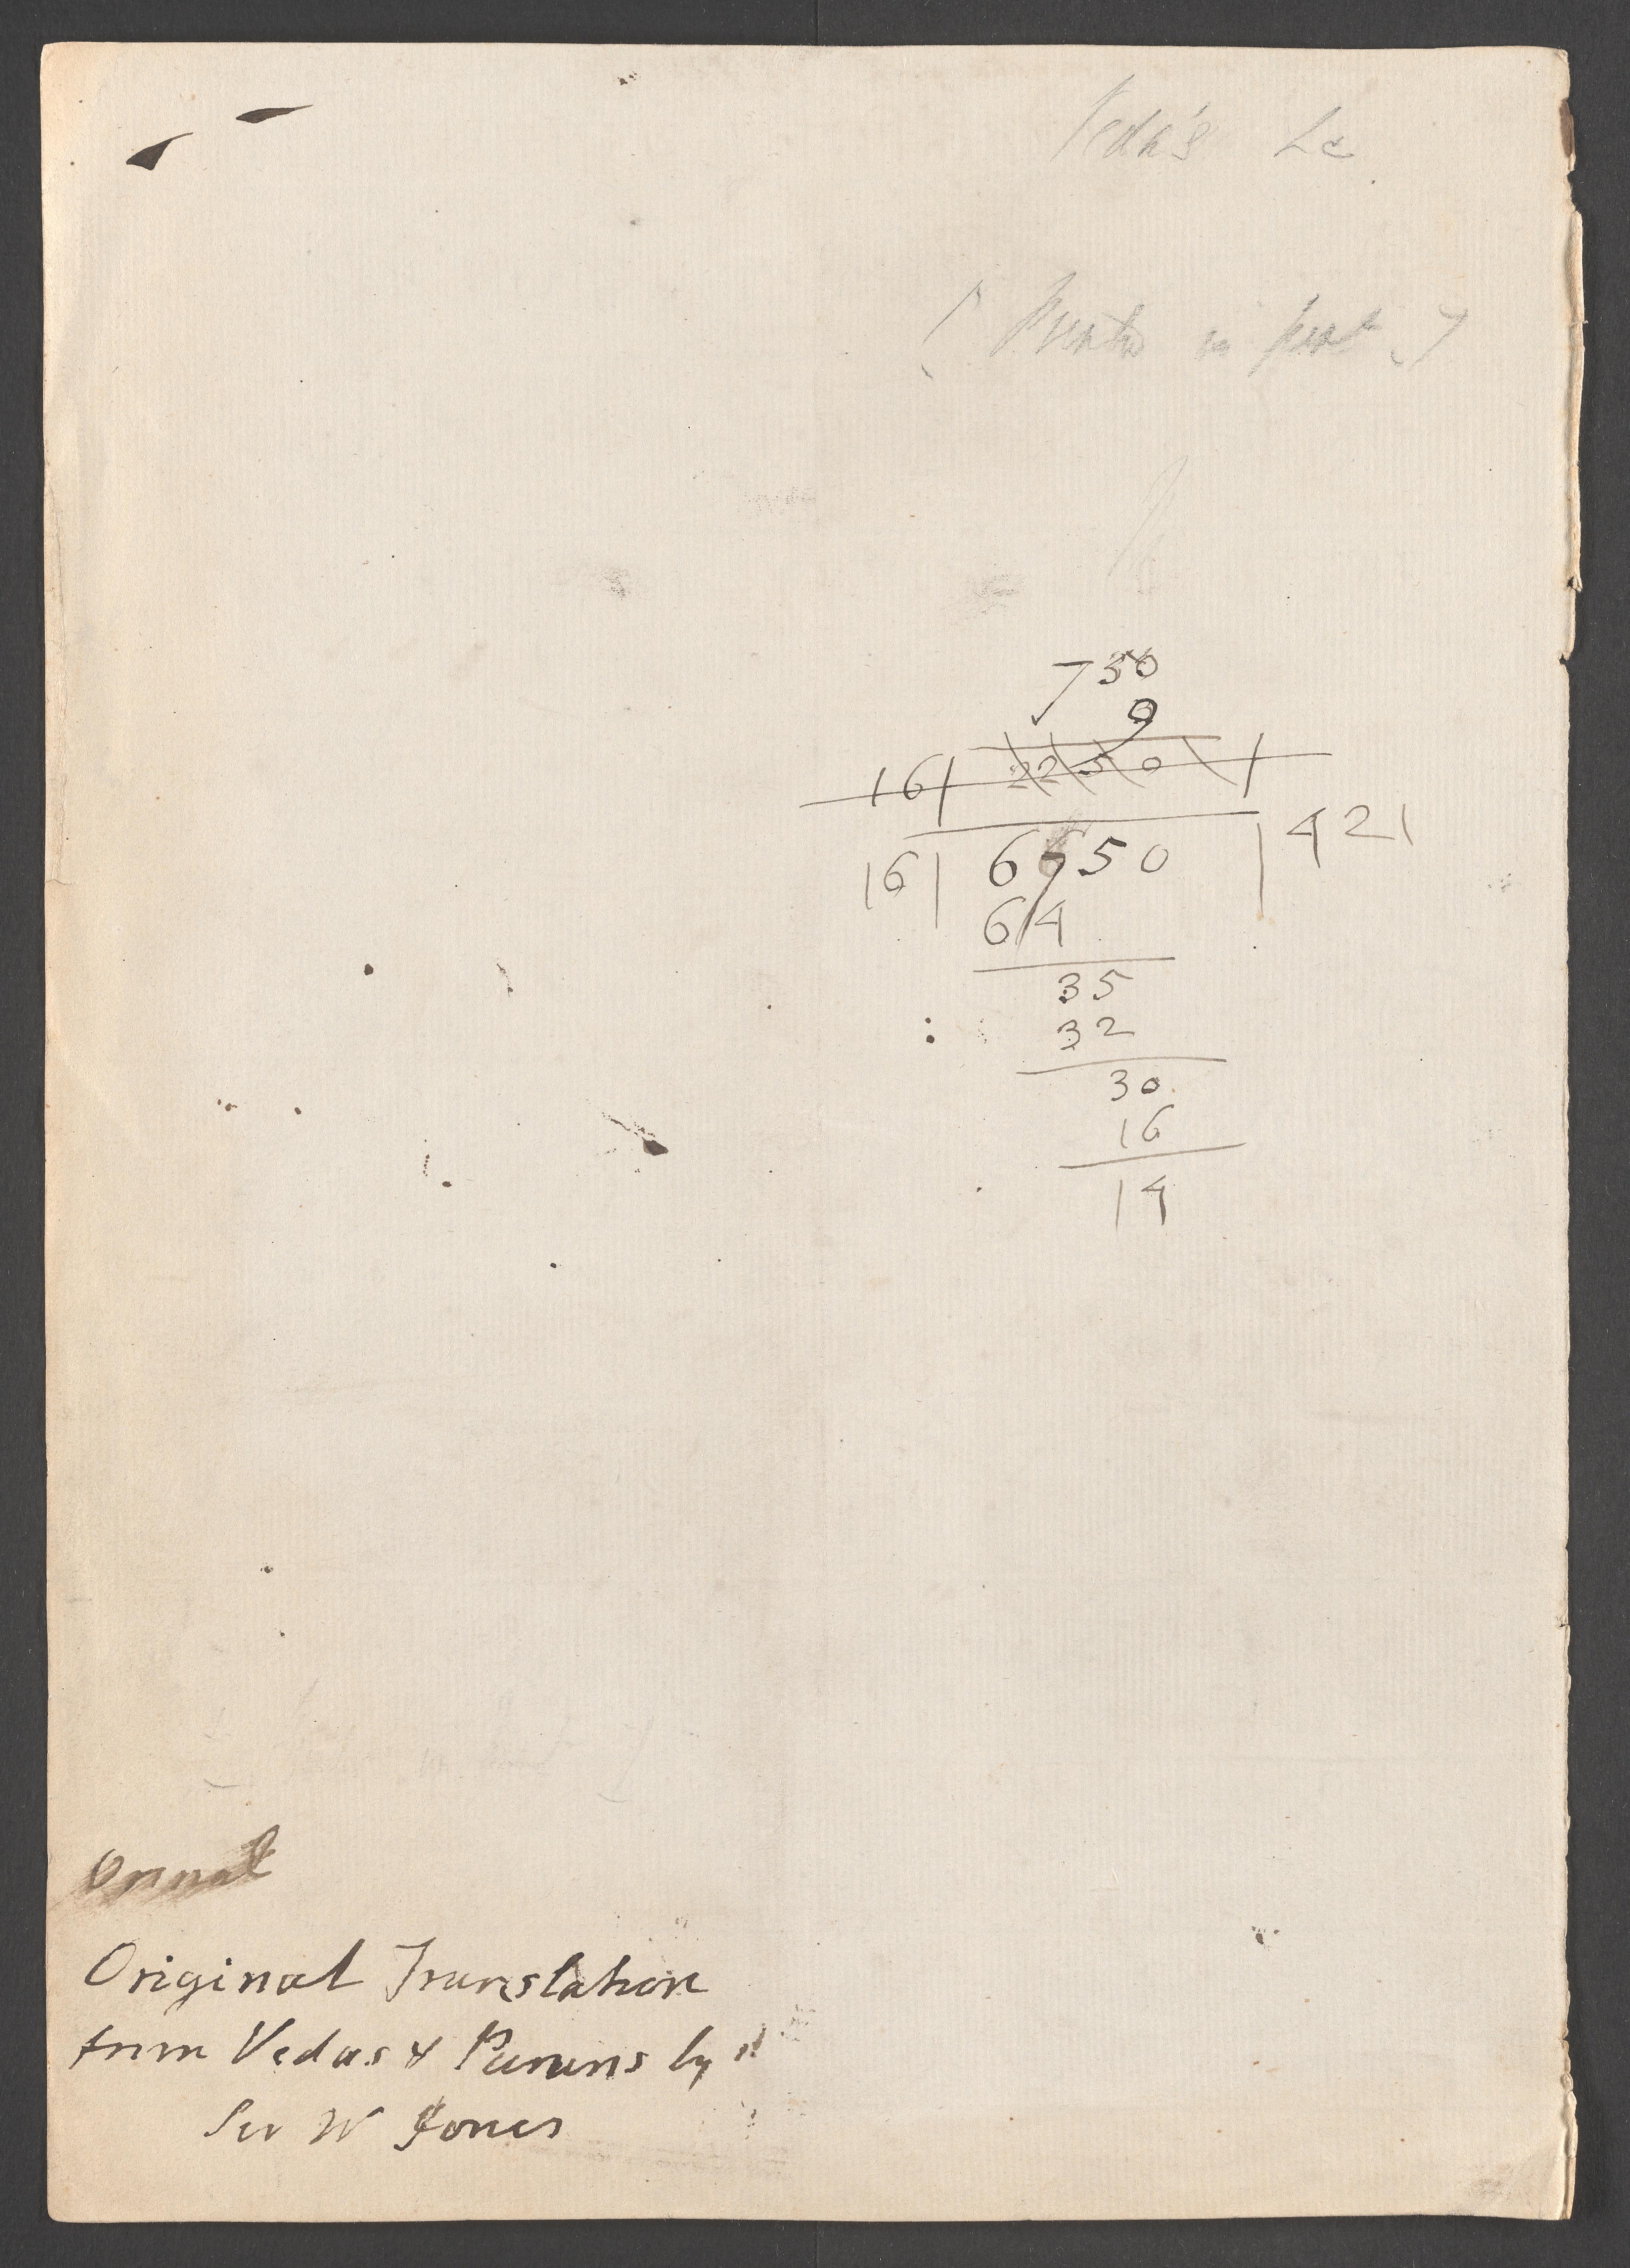 Veda's &c
750
9
16) 2250 (
16) 6750 ( 421
64
35
32
30
16
14
Original Translation
from Vedas & Purans by
Sir W Jones